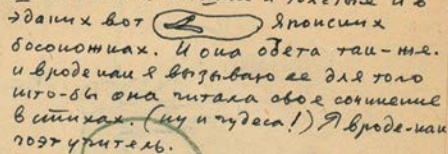 эдаких вот Японских
босоножках. И она одета так-же.
и вроде как я вызываю ее для того
што-бы она читала свое сочинение
в стихах. (ну и чудеса!) Я вроде-как
поэт учитель.